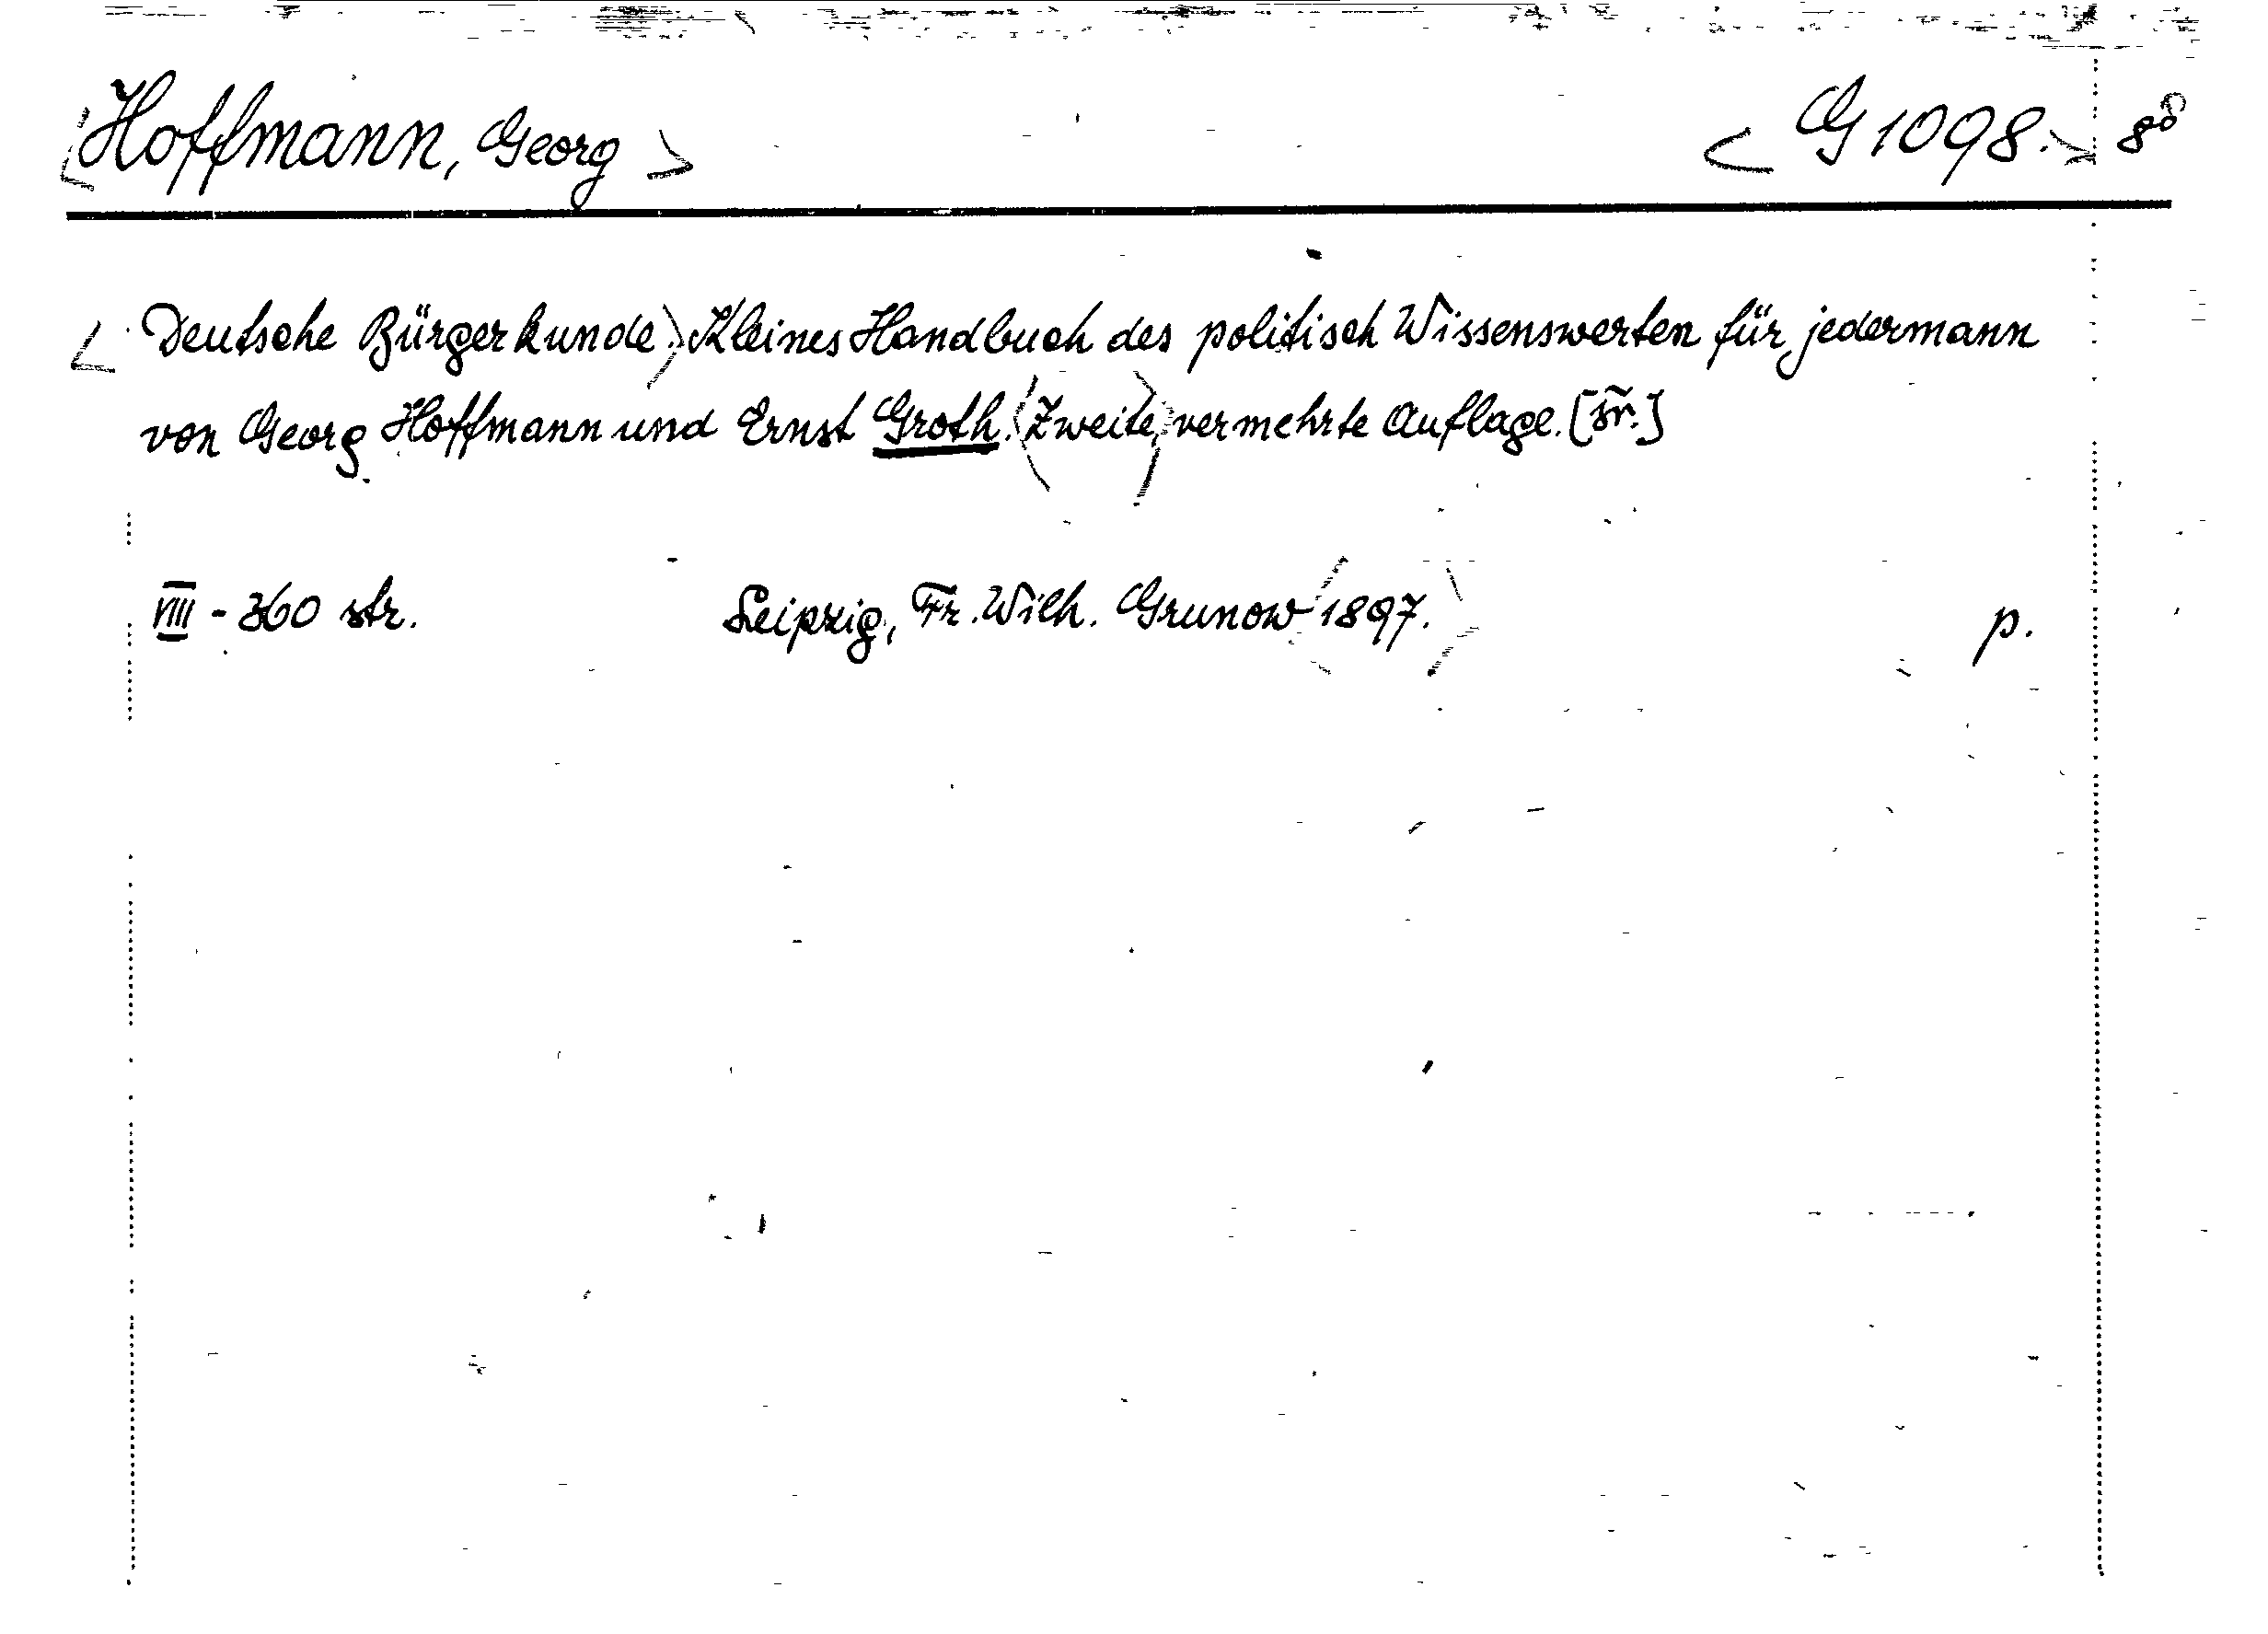 <Hoffmann, Georg> <G 1098.> 8°
<Deutsche Bürgerkunde.> Kleines Handbuch des politisch Wissenswerten für jedermann
von Georg Hoffmann und Ernst Groth. <Zweite,> vermehrte Auflage.
VIII - 360 str. Leipzig, Fr. Wilh. Grunow <1897.> p.